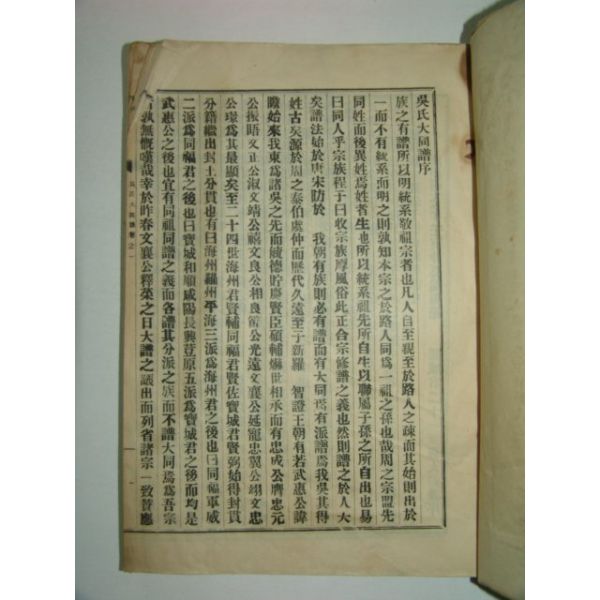 吳氏大同譜序
族之有譜所以明統系敬祖宗者也凡人自至親至於路人之疎而其始則出於
一而不有統系而明之則孰知本宗之於路人同爲一祖之孫也哉周之宗盟先
同姓而後異姓爲姓者生也所以統系祖先所自生以聯屬子孫之所自出也易
曰同人乎宗族程子曰收宗族厚風俗此正合宗修譜之義也然則譜之於人大
矣譜法始於唐宋昉於 我朝有族則必有譜而有大同焉有派譜焉我吳其得
姓古矣源於周之泰伯虞仲而歷代久遠至于新羅 智證王朝有若武惠公諱
瞻始來我東爲諸吳之先而績德貯慶賢臣碩輔燀世相承而有忠成公濟忠元
公振晤文正公淑文端公禧文良公相良 公光遠文襄公延寵忠翼公翊文忠
公璿爲其最顯矣至二十四世海州君賢輔同福君賢佐寶城君賢弼始得封貫
分籍繼出封土分貫也有曰海州羅州平海三派爲海州君之後也曰同福軍威
二派爲同福君之後也曰寶城和順咸陽長興荳原五派爲寶城君之後而均是
武惠公之後也宜有同祖同譜之義而各譜其分派之族而不譜大同焉爲吾宗
孰無慨嘆哉幸於昨春文襄公釋菜之日大譜之議出而列省諸宗一致賛應
吳氏大同譜卷之一
一